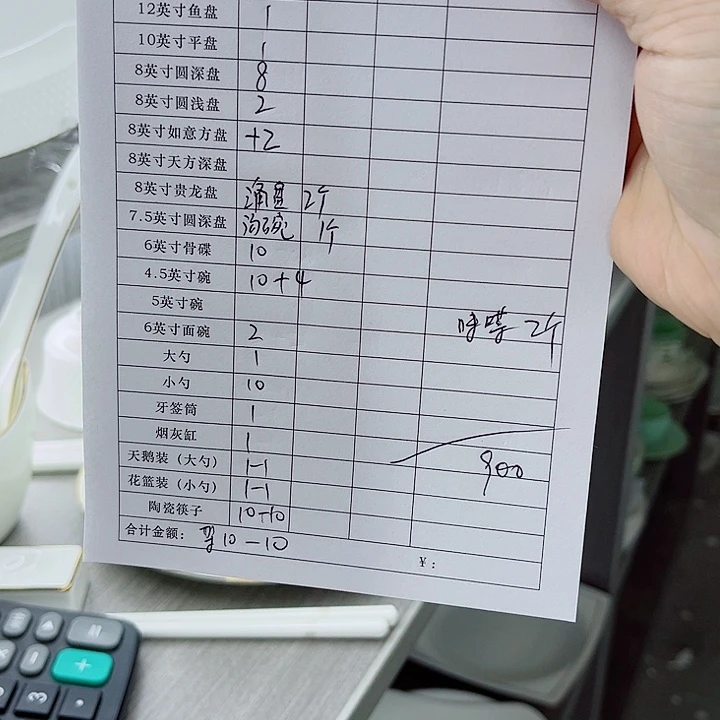 12英寸鱼盘 1
10英寸平盘 1
8英寸圆深盘 8
8英寸圆浅盘 2
8英寸如意方盘 +2
8英寸天方深盘
8英寸贵龙盘 汤盘 2个
7.5英寸圆深盘 汤碗 1个
6英寸骨碟 10
4.5英寸碗 10+4
5英寸碗
6英寸面碗 2
2个
大勺 1
小勺 10
牙签筒 1
烟灰缸 1
900
天鹅装（大勺） 1-1
花篮装（小勺） 1-1
陶瓷筷子 10+10
合计金额： 10-10
￥：
3